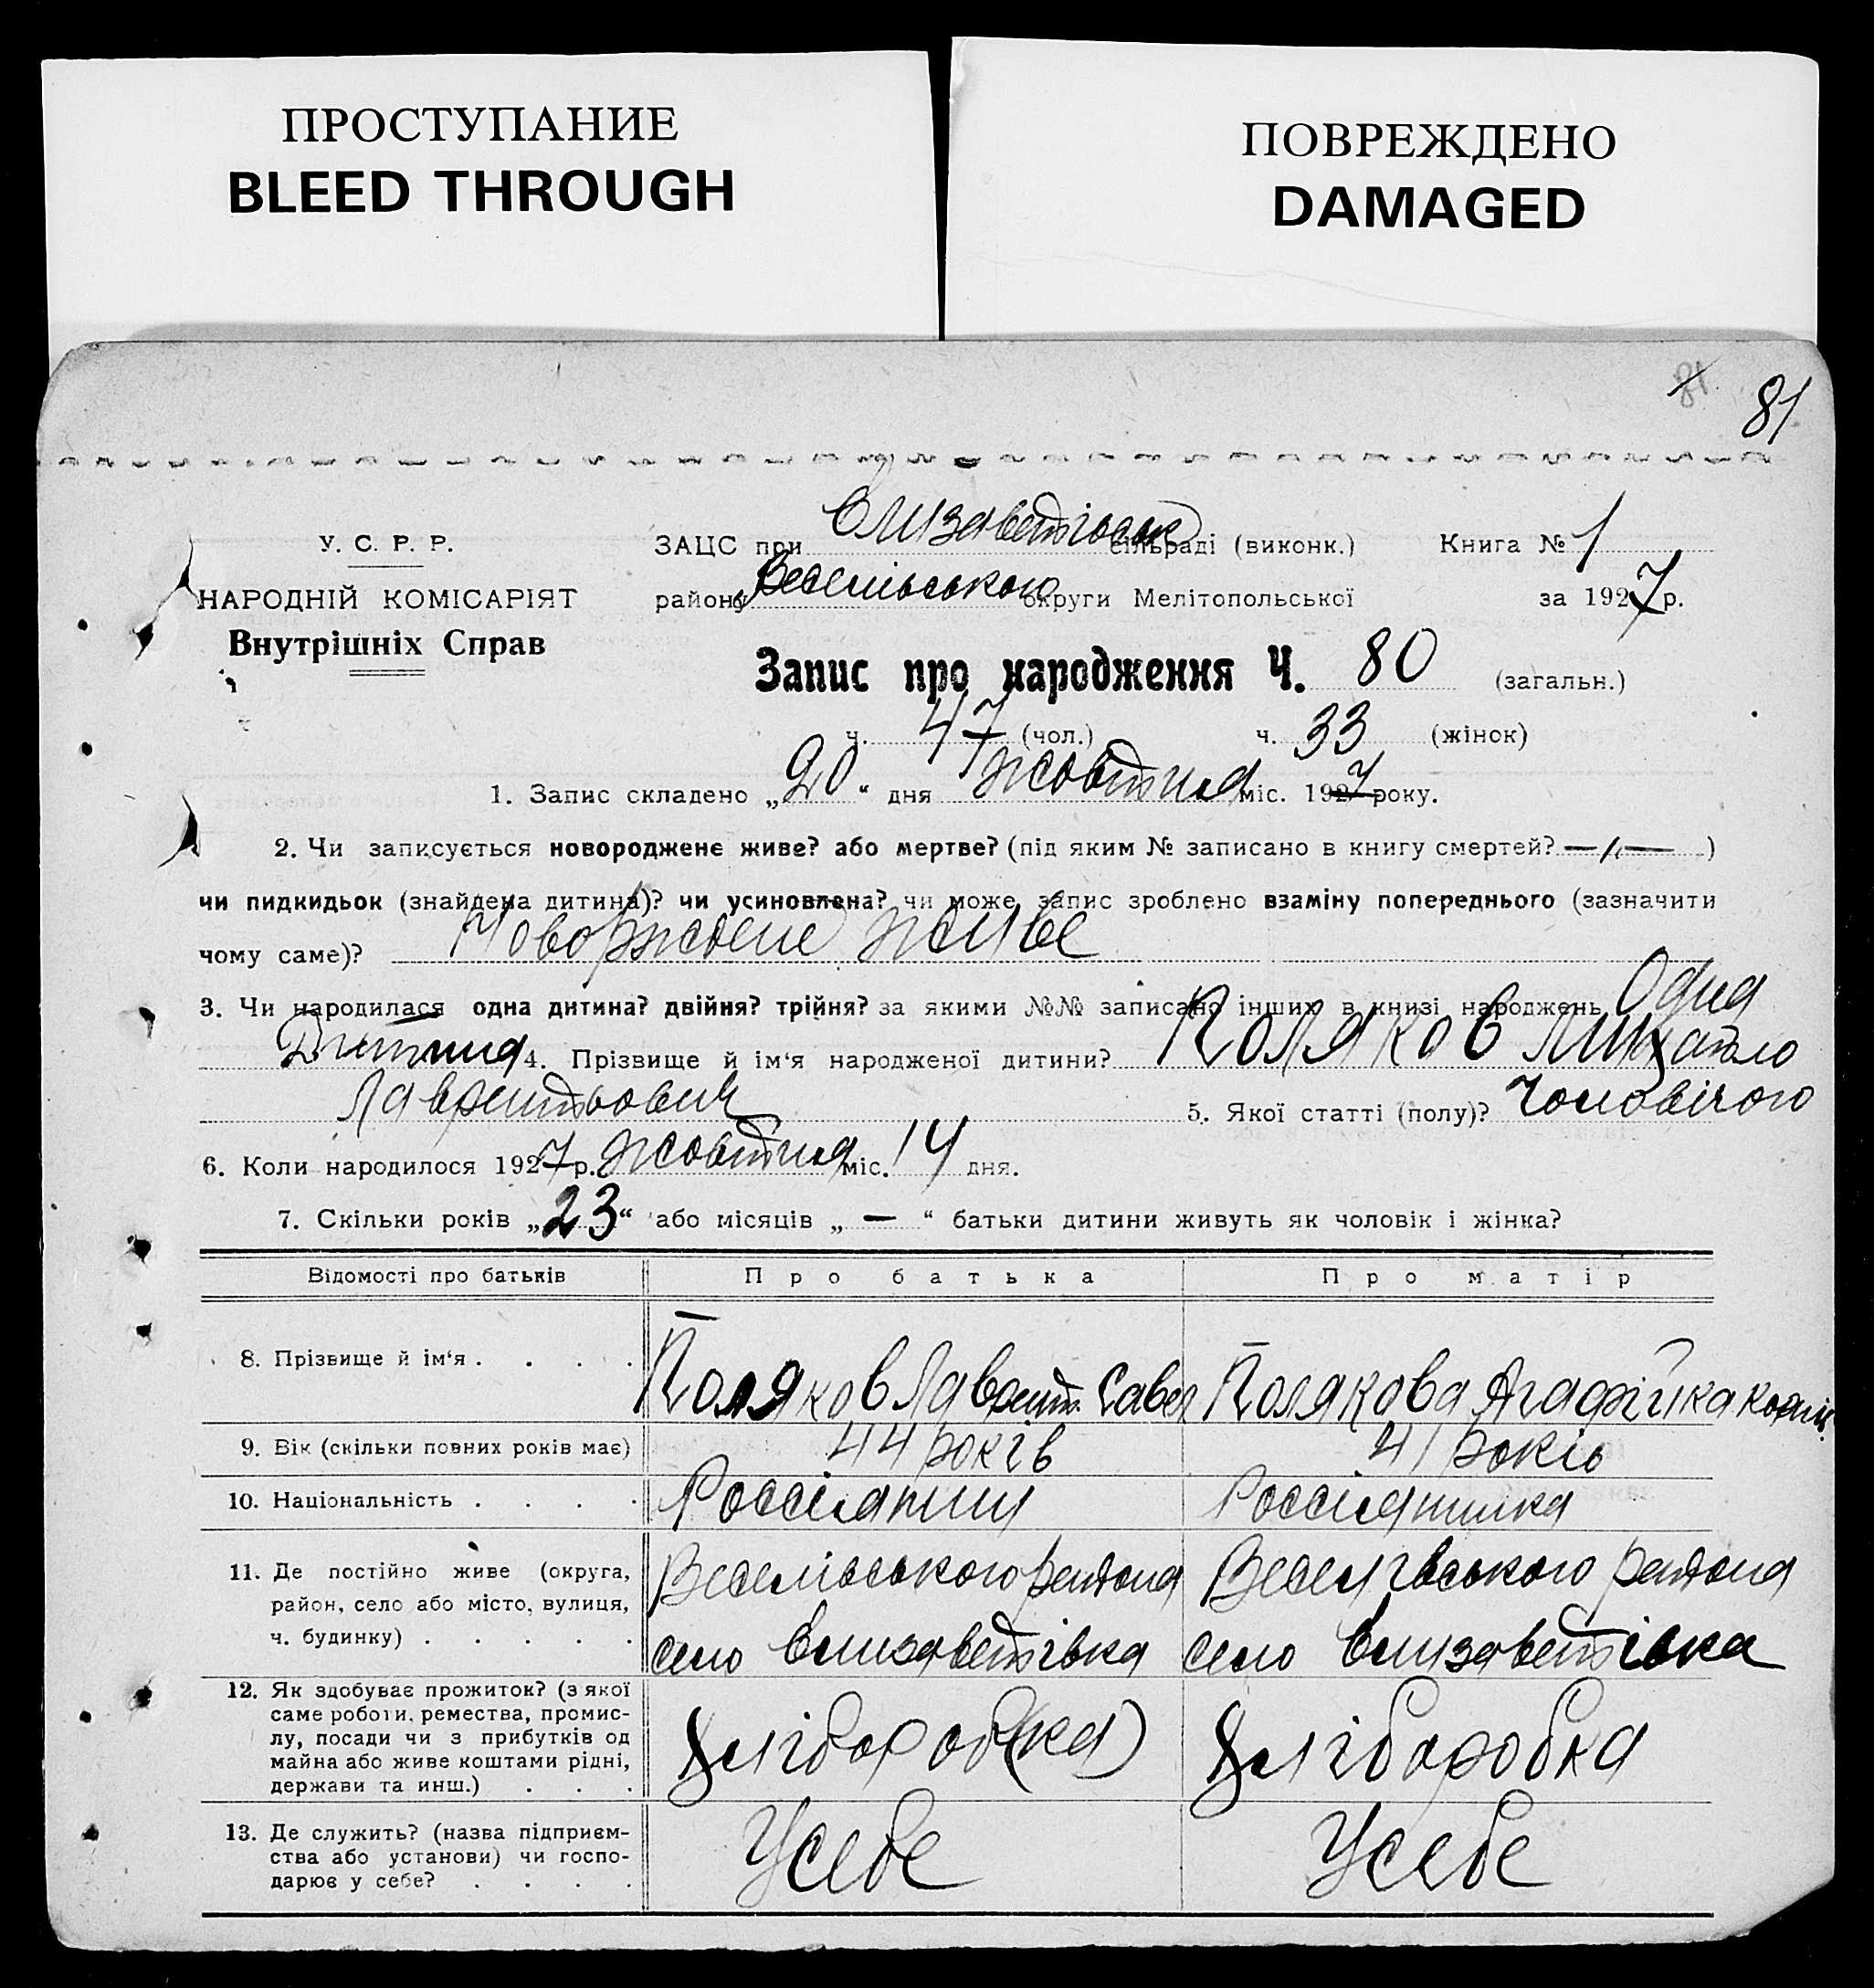 ПРОСТУПАНИЕ
BLEED THROUGH
ПОВРЕЖДЕНО
DAMAGED
81
81
У. С. Р. Р.
НАРОДНІЙ КОМІСАРІЯТ
Внутрішніх Справ
ЗАЦС при Єлизаветівськ сільраді (виконк.) Книга № 1
району Веселівського округи Мелітопольської за 1927 р.
Запис про народження Ч. 80 (загальн.)
ч. 47 (чол.) ч. 33 (жінок)
1. Запис складено „20“ дня жовтня міс. 1927 року.
2. Чи записується новороджене живе? або мертве? (під яким № записано в книгу смертей? —„— )
чи пидкидьок (знайдена дитина)? чи усиновлена? чи може запис зроблено взаміну попереднього (зазначити
чому саме)? Новорждене живе
3. Чи народилася одна дитина? двійня? трійня? за якими №№ записано інших в книзі народжень Одна
Дитина 4. Прізвище й ім‘я народженої дитини? Поляков Михайло
Лаврентьович 5. Якої статті (полу)? Чоловічого
6. Коли народилося 1927 р. жовтня міс. 14 дня.
7. Скільки років „23“ або місяців „—“ батьки дитини живуть як чоловік і жінка?
Відомості про батьків Про батька Про матір
8. Прізвище й ім‘я . . . . Поляков Лаврент. Савел Полякова Агафійка
9. Вік (скільки повних років має) 44 років 41 років
10. Національність . . . . Россіянин Россіянинка
11. Де постійно живе (округа,
район, село або місто, вулиця,
ч. будинку) . . . . .
Веселівського району Веселівського району
село Єлизаветівка село Єлизаветівка
12. Як здобуває прожиток? (з якої
саме роботи, ремества, промис-
лу, посади чи з прибутків од
майна або живе коштами рідні,
держави та инш.) . . .
Хлібороб(ка) Хліборобка
13. Де служить? (назва підприєм-
ства або установи) чи госпо-
дарює у себе? . . . .
Усебе Усебе